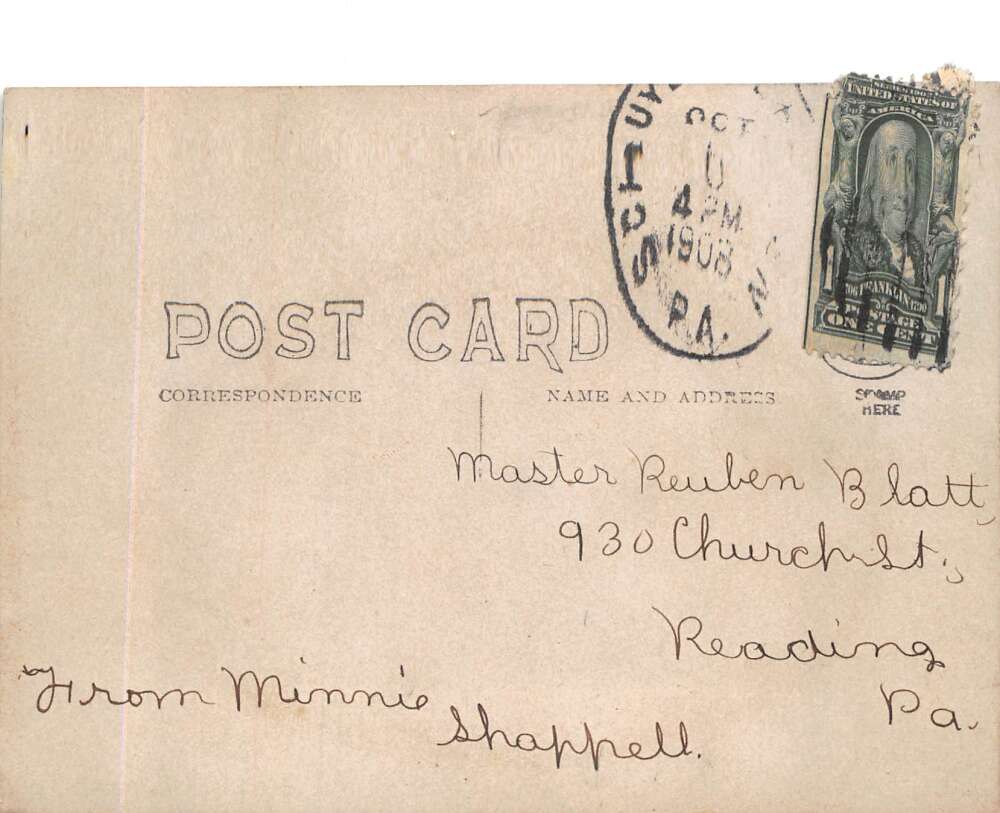 OCT
4 PM
1908
PA.
SERIES 1902
UNITED STATES OF
AMERICA
FRANKLIN
POSTAGE
ONE CENT
1 1
POST CARD
CORRESPONDENCE
NAME AND ADDRESS
STAMP
HERE
Master Reuben Blatt,
930 Church St.,
Reading
Pa.
From Minnie
Shappell.